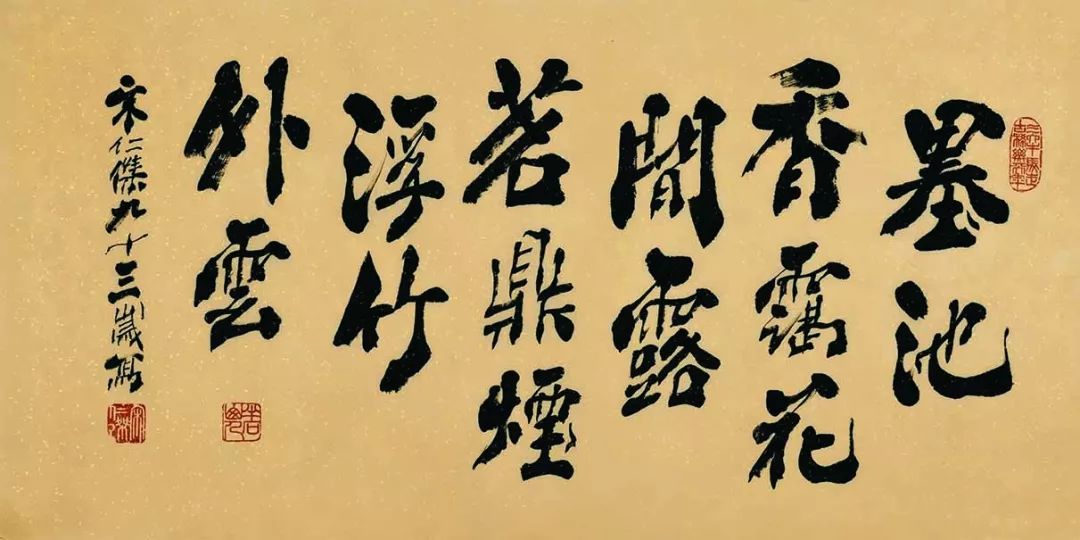 墨池
香靄花
間露
茗鼎煙
浮竹
外雲
宋仁傑九十三歲寫